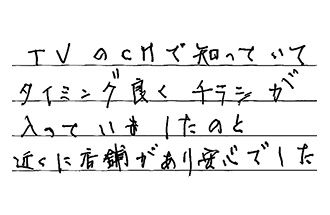 TVのCMで知っていて
タイミング良くチラシが
入っていましたのと
近くに店舗があり安心でした